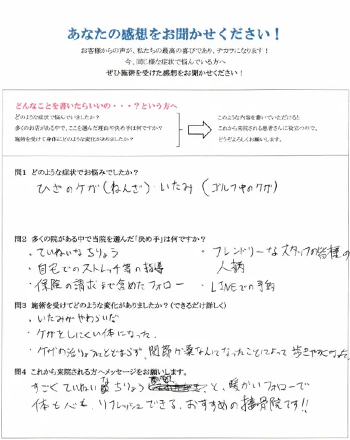 あなたの感想をお聞かせください！
お客様からの声が、私たちの最高の喜びであり、チカラになります！
今、同じ様な症状で悩んでいる方へ
ぜひ施術を受けた感想をお聞かせください！
どんなことを書いたらいいの・・・？という方へ
どのような症状で悩んでいましたか？
多くのお店がある中で、ここを選んだ理由や決め手は何ですか？
施術を受けて身体にどのような変化がありましたか？
このような内容を書いていただけると
これから来院される患者さんに役立つので、
どうぞよろしくお願いします。
問1 どのような症状でお悩みでしたか？
ひざのケガ（ねんざ）・いたみ（ゴルフ中のケガ）
問2 多くの院がある中で当院を選んだ「決め手」は何ですか？
・ていねいなちりょう
・自宅でのストレッチ等の指導
・保険の請求まで含めたフォロー
・フレンドリーなスタッフの皆様の
人柄
・LINEでの予約
問3 施術を受けてどのような変化がありましたか？（できるだけ詳しく）
・いたみがやわらいだ
・ケガをしにくい体になった
・ケガの治りょうにとどまらず、関節が柔なんになったことによって歩きやすくなった。
問4 これから来院される方へメッセージをお願いします。
すごくていねいなちりょうと、暖かいフォローで
体も人も、リフレッシュできる、おすすめの接骨院です!!